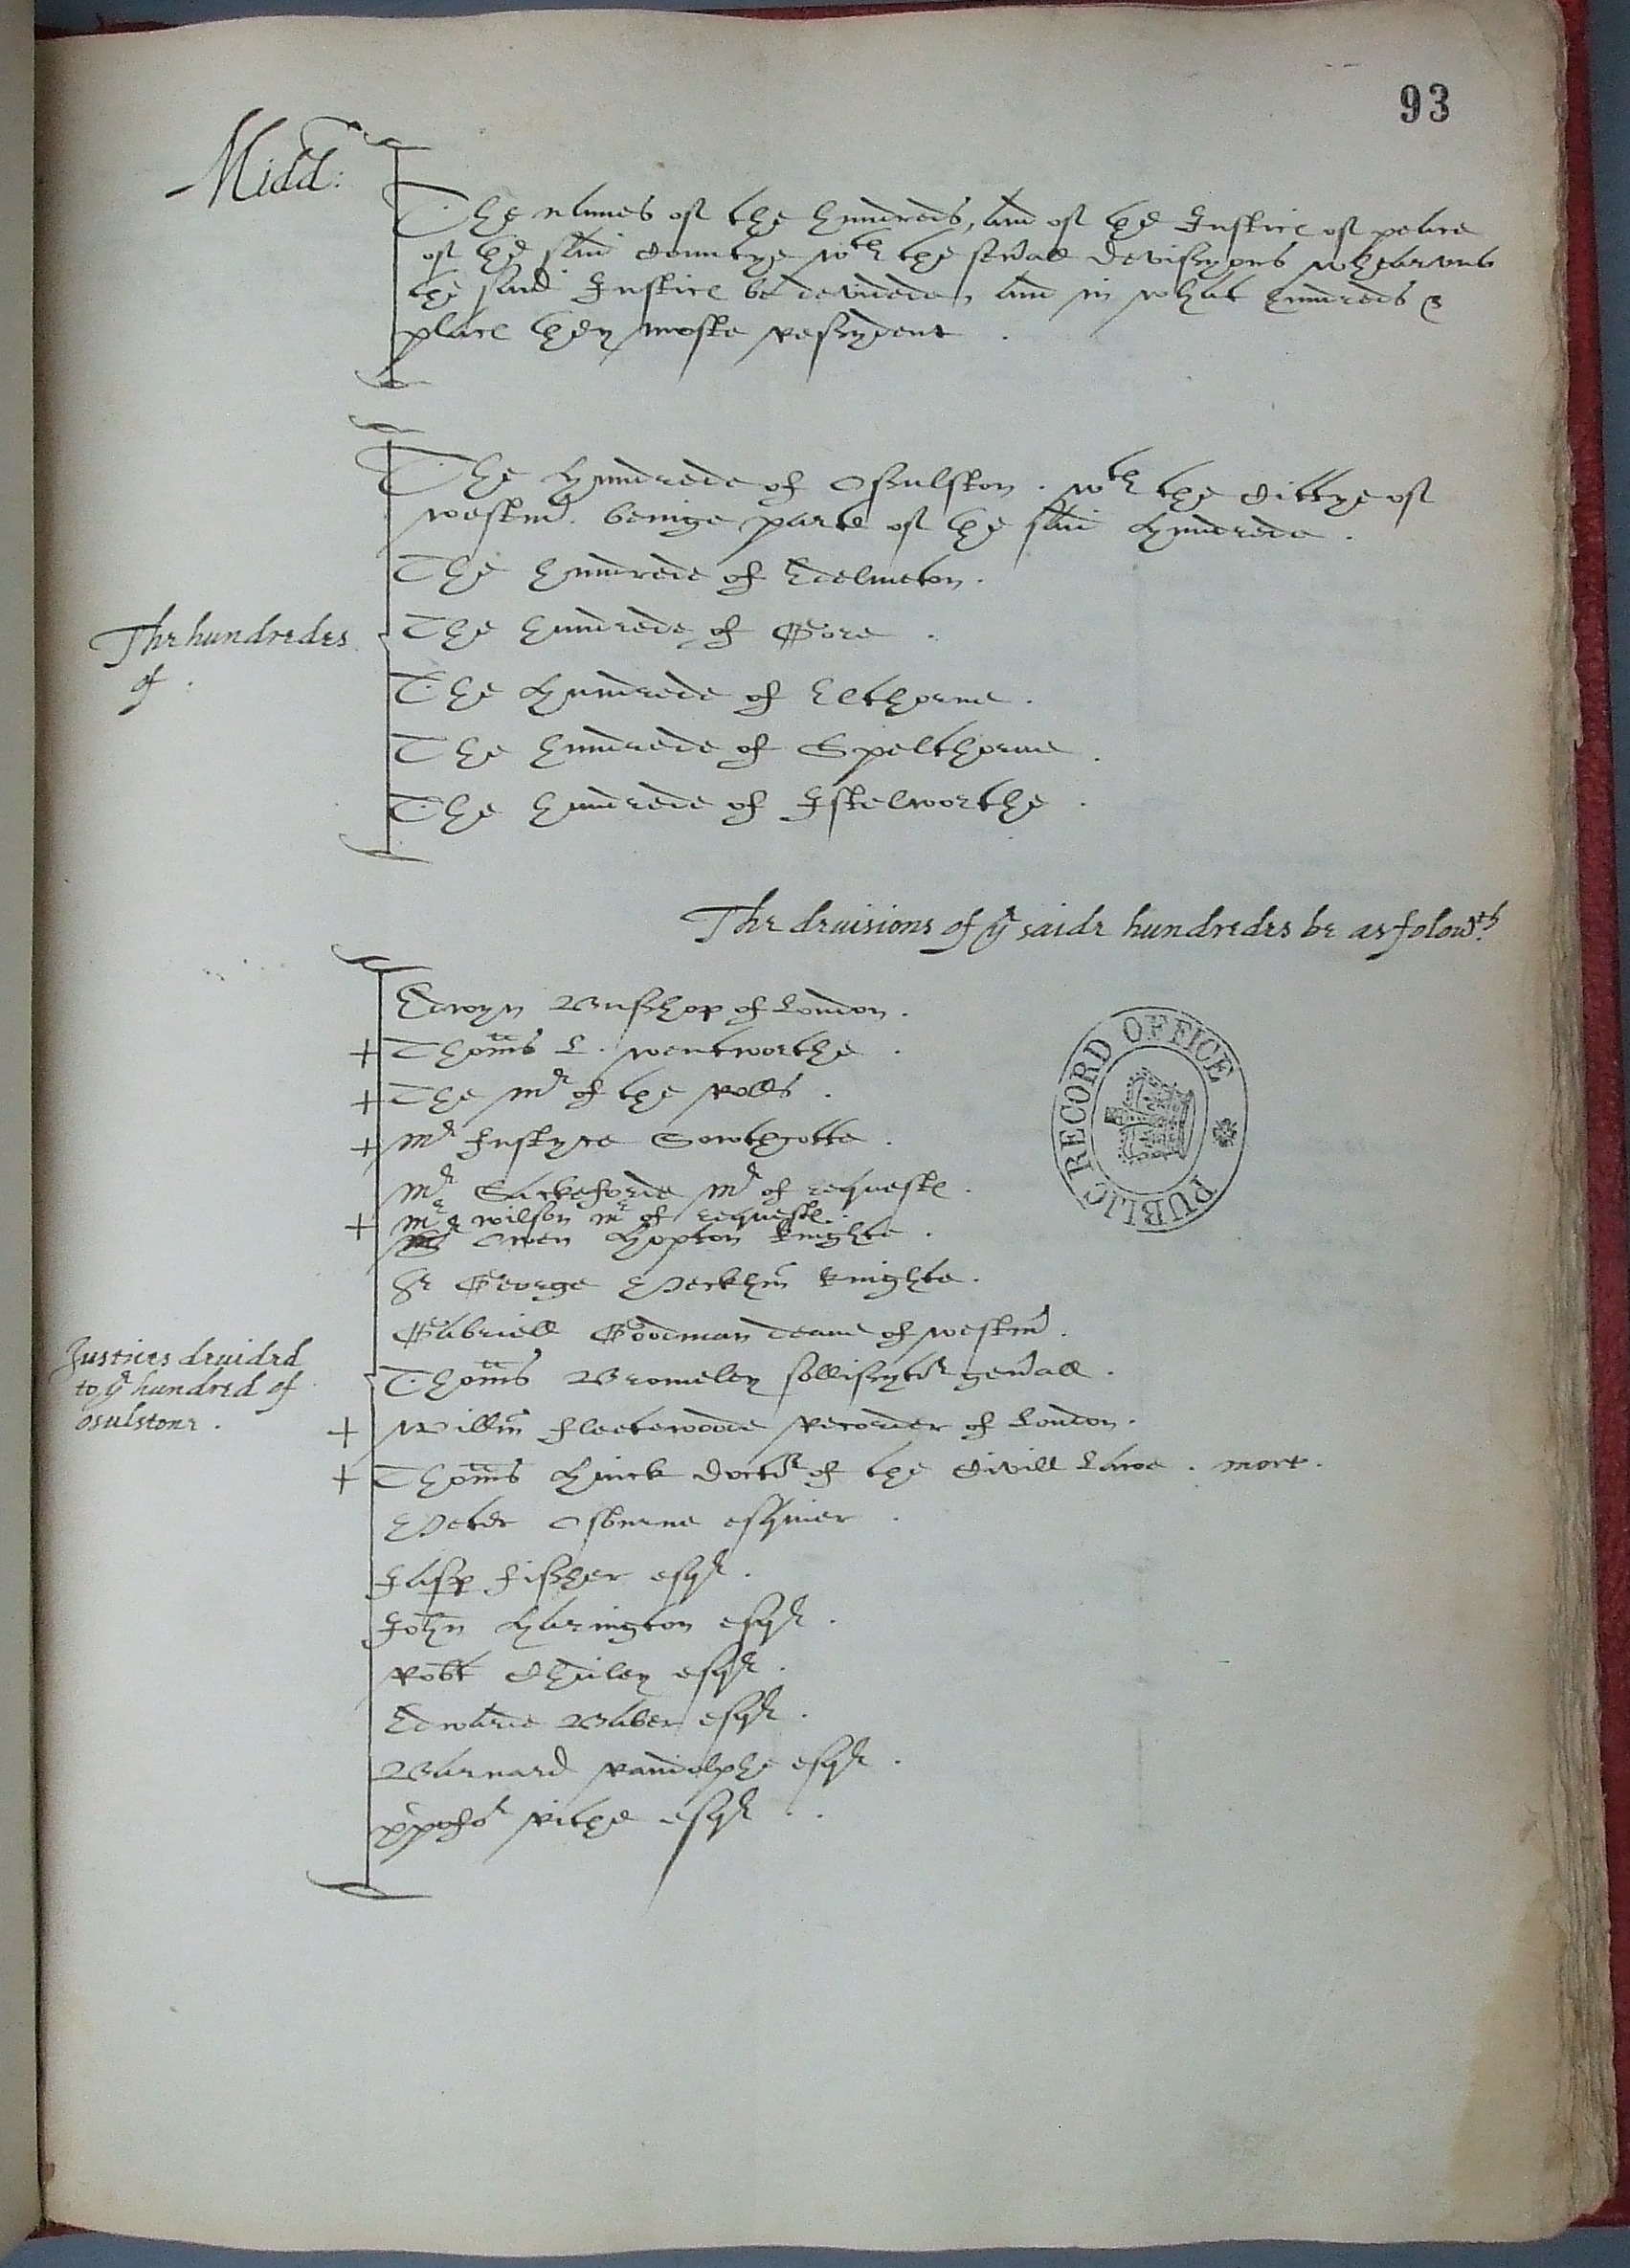 93
Midd:
The names of the hundreds, and of the Justice of peace
of the said Countye wth the seuall Devissyons whearunto
the said Justice be devidede, and in what hundreds &
place they moste ressydent.
The Hundrede of Ossulston. wth the Cittye of
westm. beinge parte of the said Hundrede.
The hundrede of Edelmeton.
The hundredes
of.
The hundrede of Gore.
The Hundrede of Elthorne.
The hundrede of Spelthorne.
The hundrede of Istelworthe.
The deuisions of ye saide hundredes be as folowth.
Edwyn Busshop of London.
+ Thoms L. wentworthe.
+ The Mr of the Rolls.
+ Mr Justyce Sowthcotte.
Mr Sackeforde Mr of requeste.
+ Mr wilson mr of requeste.
Owen Hopton knighte.
Sr George Peckhm knighte.
Gabriell Goodman deane of westm.
Justices deuided
to ye hundred of
osulstone.
Thoms Bromeley sollissytor genall.
+ Willm Fleetewoode Recorder of London.
+ Thoms Huick doctor of the Civill Lawe. mort.
Peter Osburne esquier.
Jasp Fissher esqr.
John Harington esqr.
Robt Chidley esqr.
Edwarde Baber esqr.
Barnard Randolphe esqr.
xpofor Rithe esqr.
PUBLIC RECORD OFFICE